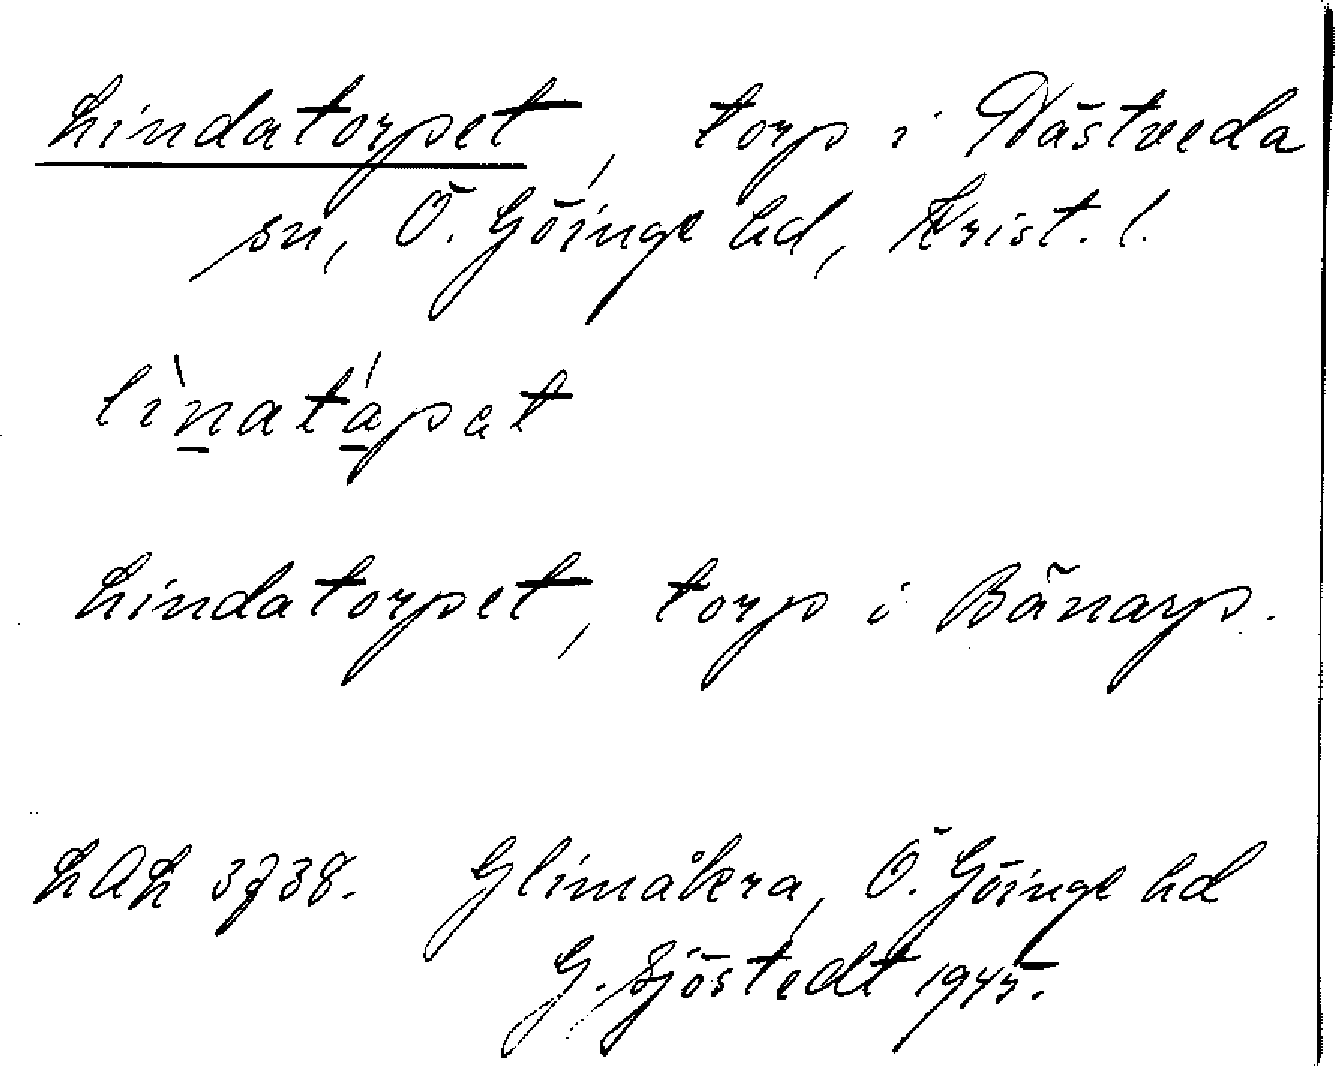 Lindatorpet, torp i Nästveda
sn, Ö. Göinge hd, Krist. l.
lìnatápat
Lindatorpet, torp i Bänarp.
LAL 3738. Glimåkra, Ö. Göinge hd
G. Sjöstedt 1945.